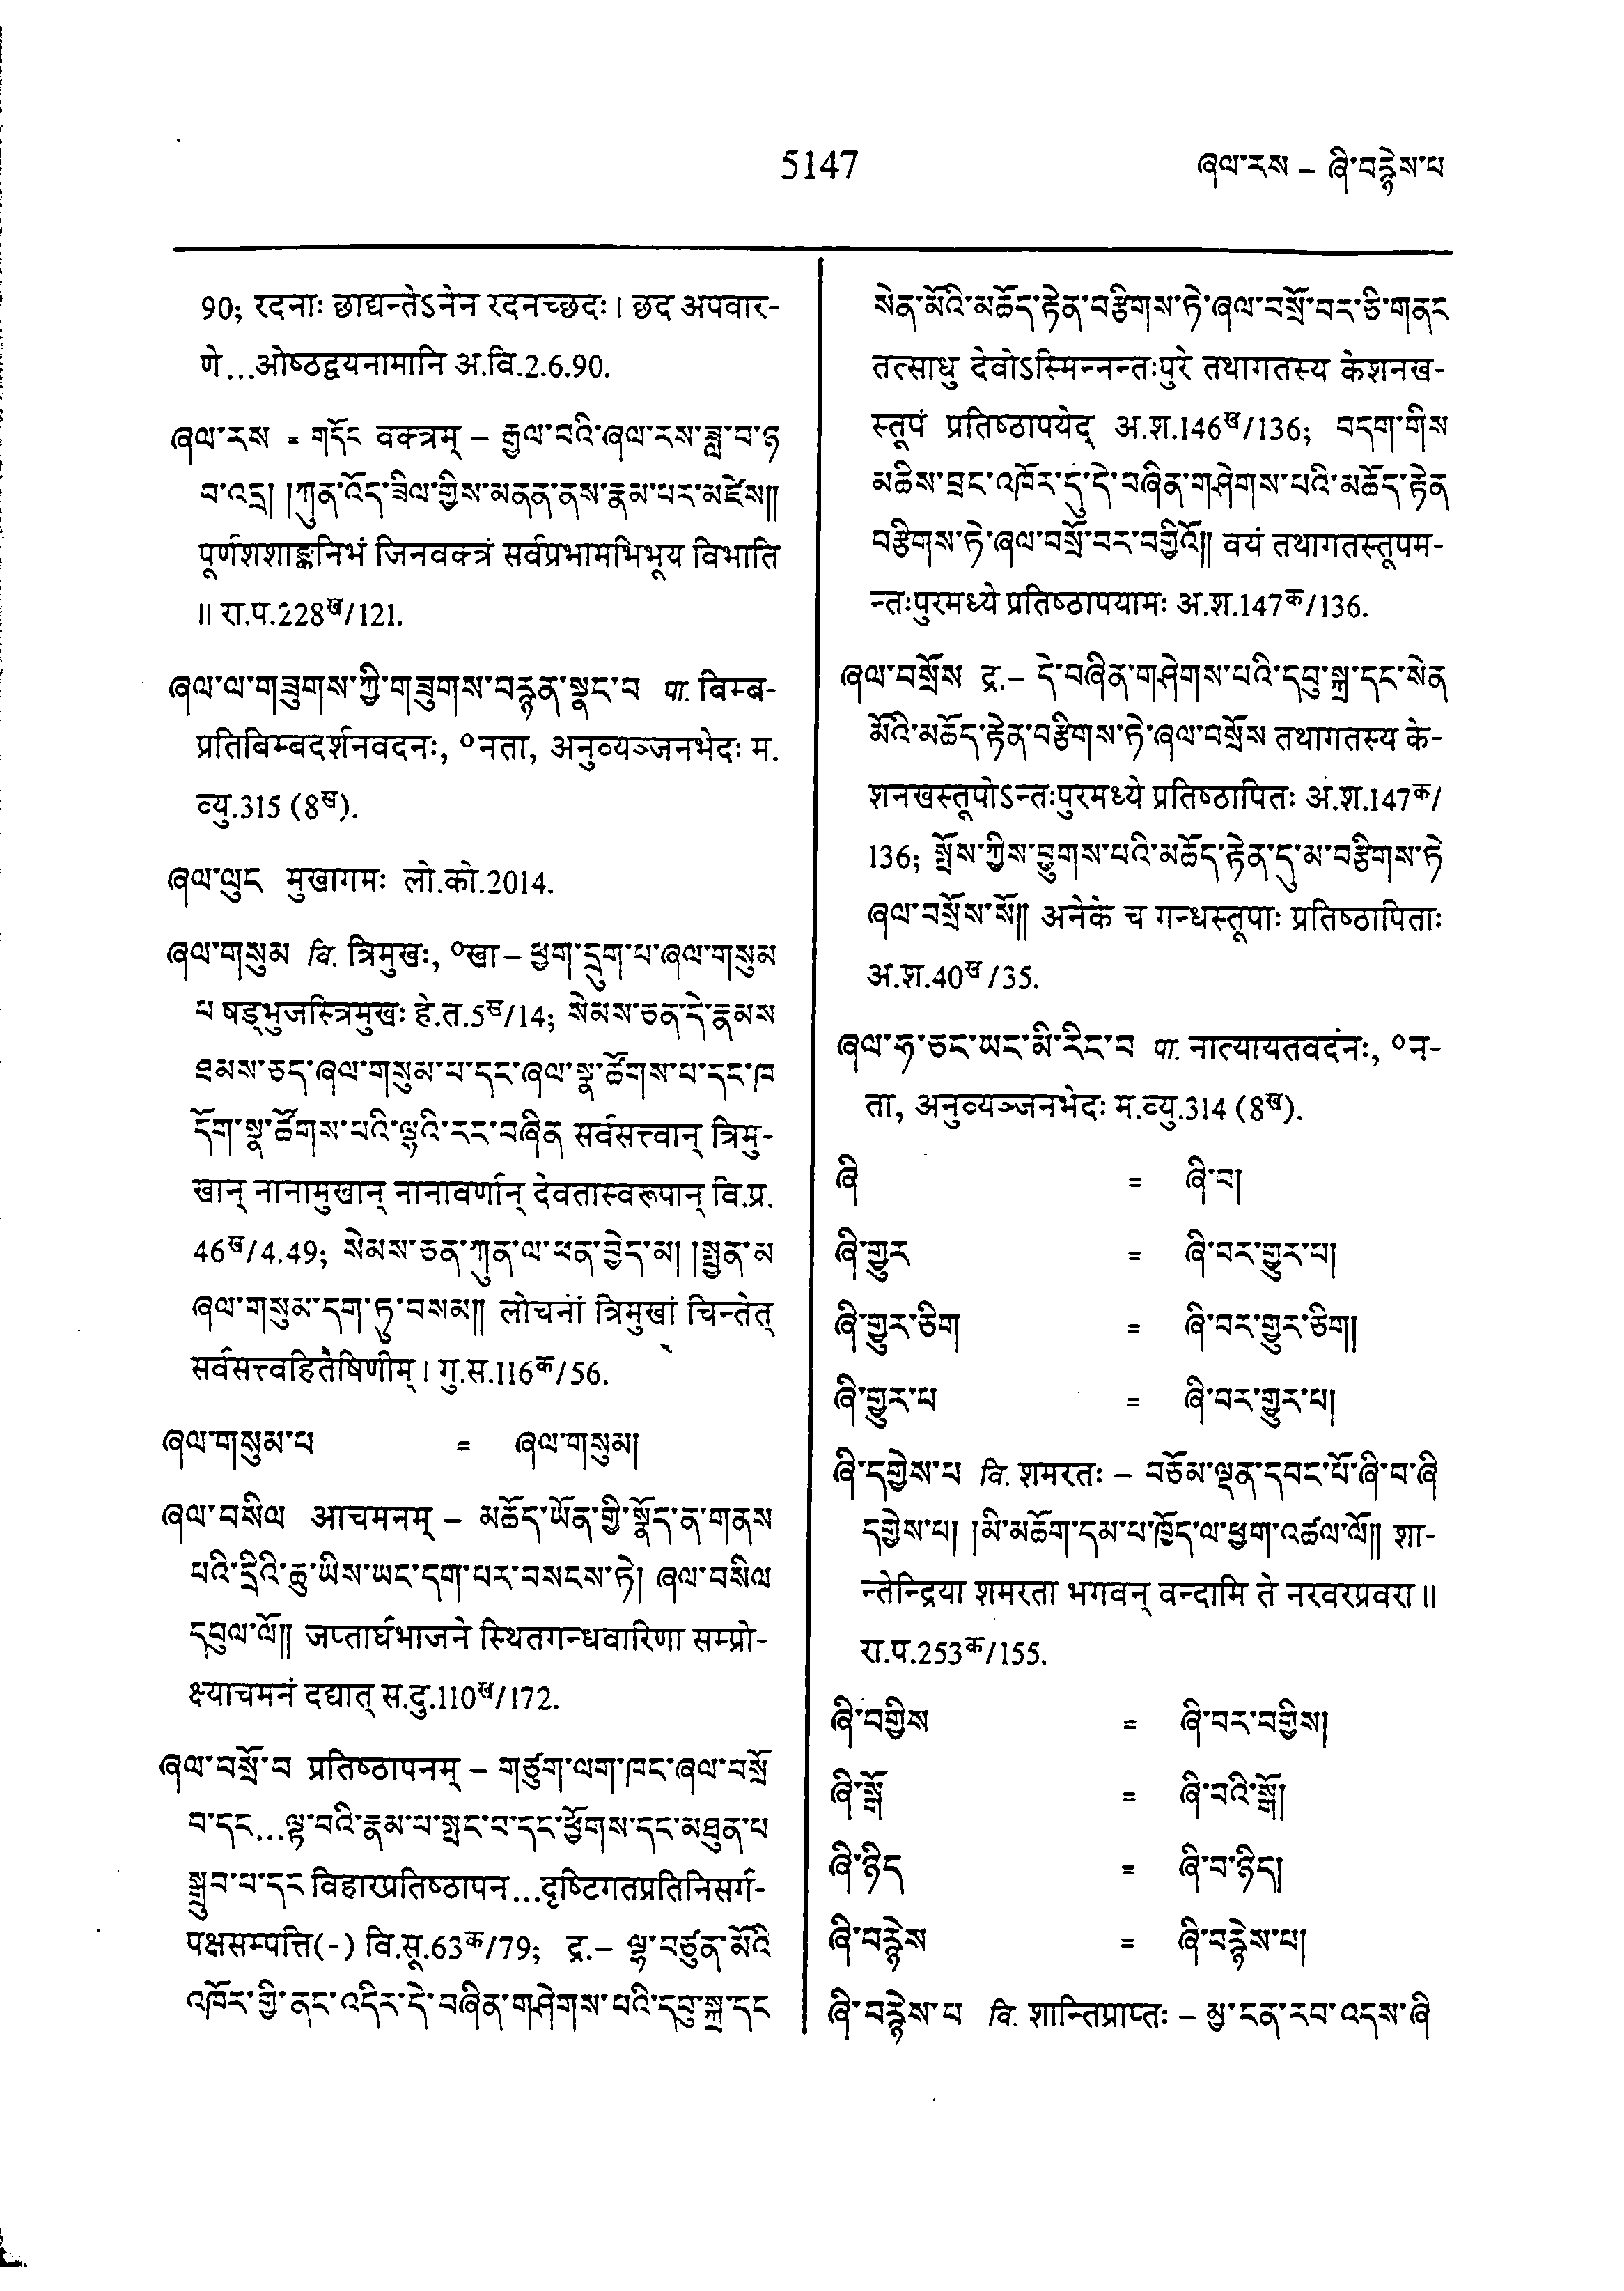 5147
ཞལ་རས – ཞི་བརྙེས་པ
90; रदनाः छाद्यन्तेऽनेन रदनच्छदः। छद अपवार-
णे...ओष्ठद्वयनामानि अ.वि.2.6.90.
ཞལ་རས = གདོང वक्त्रम् – རྒྱལ་བའི་ཞལ་རས་ཟླ་བ་ཉ
བ་འདྲ། །ཀུན་འོད་ཟིལ་གྱིས་མནན་ནས་རྣམ་པར་མཛེས།།
पूर्णशशाङ्कनिभं जिनवक्त्रं सर्वप्रभामभिभूय विभाति
॥ रा.प.228ख/121.
ཞལ་ལ་གཟུགས་ཀྱི་གཟུགས་བརྙན་སྣང་བ पा. बिम्ब-
प्रतिबिम्बदर्शनवदनः, ॰नता, अनुव्यञ्जनभेदः म.
व्यु.315 (8ख).
ཞལ་ལུང मुखागमः लो.को.2014.
ཞལ་གསུམ वि. त्रिमुखः, ॰खा – ཕྱག་དྲུག་པ་ཞལ་གསུམ
པ षड्भुजस्त्रिमुखः हे.त.5ख/14; སེམས་ཅན་དེ་རྣམས
ཐམས་ཅད་ཞལ་གསུམ་པ་དང་ཞལ་སྣ་ཚོགས་པ་དང་ཁ
དོག་སྣ་ཚོགས་པའི་ལྷའི་རང་བཞིན सर्वसत्त्वान् त्रिमु-
खान् नानामुखान् नानावर्णान् देवतास्वरूपान् वि.प्र.
46ख/4.49; སེམས་ཅན་ཀུན་ལ་ཕན་བྱེད་མ། །སྤྱན་མ
ཞལ་གསུམ་དག་ཏུ་བསམ།། लोचनां त्रिमुखां चिन्तेत्
सर्वसत्त्वहितैषिणीम्। गु.स.116क/56.
ཞལ་གསུམ་པ = ཞལ་གསུམ།
ཞལ་བསིལ आचमनम् – མཆོད་ཡོན་གྱི་སྣོད་ན་གནས
པའི་དྲིའི་ཆུ་ཡིས་ཡང་དག་པར་བསངས་ཏེ། ཞལ་བསིལ
དབུལ་ལོ།། जप्तार्घभाजने स्थितगन्धवारिणा सम्प्रो-
क्ष्याचमनं दद्यात् स.दु.110ख/172.
ཞལ་བསྲོ་བ प्रतिष्ठापनम् – གཙུག་ལག་ཁང་ཞལ་བསྲོ
བ་དང...ལྟ་བའི་རྣམ་པ་སྤང་བ་དང་ཕྱོགས་དང་མཐུན་པ
སྒྲུབ་པ་དང विहारप्रतिष्ठापन...दृष्टिगतप्रतिनिसर्ग-
पक्षसम्पत्ति(-) वि.सू.63क/79; द्र.– ལྷ་བཙུན་མོའི
འཁོར་གྱི་ནང་འདིར་དེ་བཞིན་གཤེགས་པའི་དབུ་སྐྲ་དང
སེན་མོའི་མཆོད་རྟེན་བརྩིགས་ཏེ་ཞལ་བསྲོ་བར་ཅི་གནང
तत्साधु देवोऽस्मिन्नन्तःपुरे तथागतस्य केशनख-
स्तूपं प्रतिष्ठापयेद् अ.श.146ख/136; བདག་གིས
མཆིས་བྲང་འཁོར་དུ་དེ་བཞིན་གཤེགས་པའི་མཆོད་རྟེན
བརྩིགས་ཏེ་ཞལ་བསྲོ་བར་བགྱིའོ།། वयं तथागतस्तूपम-
न्तःपुरमध्ये प्रतिष्ठापयामः अ.श.147क/136.
ཞལ་བསྲོས द्र.– དེ་བཞིན་གཤེགས་པའི་དབུ་སྐྲ་དང་སེན
མོའི་མཆོད་རྟེན་བརྩིགས་ཏེ་ཞལ་བསྲོས तथागतस्य के-
शनखस्तूपोऽन्तःपुरमध्ये प्रतिष्ठापितः अ.श.147क/
136; སྤོས་ཀྱིས་བྱུགས་པའི་མཆོད་རྟེན་དུ་མ་བརྩིགས་ཏེ
ཞལ་བསྲོས་སོ།། अनेके च गन्धस्तूपाः प्रतिष्ठापिताः
अ.श.40ख/35.
ཞལ་ཧ་ཅང་ཡང་མི་རིང་བ पा. नात्यायतवदनः, ॰न-
ता, अनुव्यञ्जनभेदः म.व्यु.314 (8ख).
ཞི = ཞི་བ།
ཞི་གྱུར = ཞི་བར་གྱུར་པ།
ཞི་གྱུར་ཅིག = ཞི་བར་གྱུར་ཅིག།
ཞི་གྱུར་པ = ཞི་བར་གྱུར་པ།
ཞི་དགྱེས་པ वि. शमरतः – བཅོམ་ལྡན་དབང་པོ་ཞི་བ་ཞི
དགྱེས་པ། །མི་མཆོག་དམ་པ་ཁྱོད་ལ་ཕྱག་འཚལ་ལོ།། शा-
न्तेन्द्रिया शमरता भगवन् वन्दामि ते नरवरप्रवरा॥
रा.प.253क/155.
ཞི་བགྱིས = ཞི་བར་བགྱིས།
ཞི་སྒོ = ཞི་བའི་སྒོ།
ཞི་ཉིད = ཞི་བ་ཉིད།
ཞི་བརྙེས = ཞི་བརྙེས་པ།
ཞི་བརྙེས་པ वि. शान्तिप्राप्तः – མྱ་ངན་རབ་འདས་ཞི